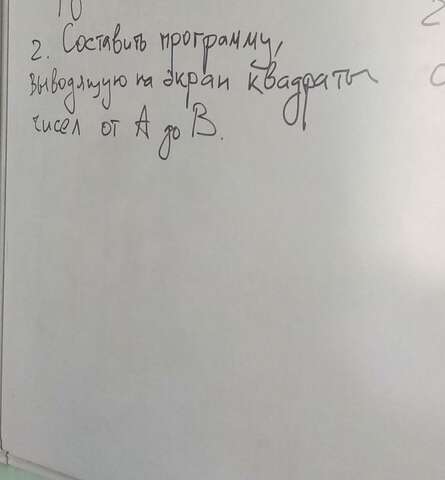 10
2. Составить программу,
выводящую на экран квадраты
чисел от A до B.